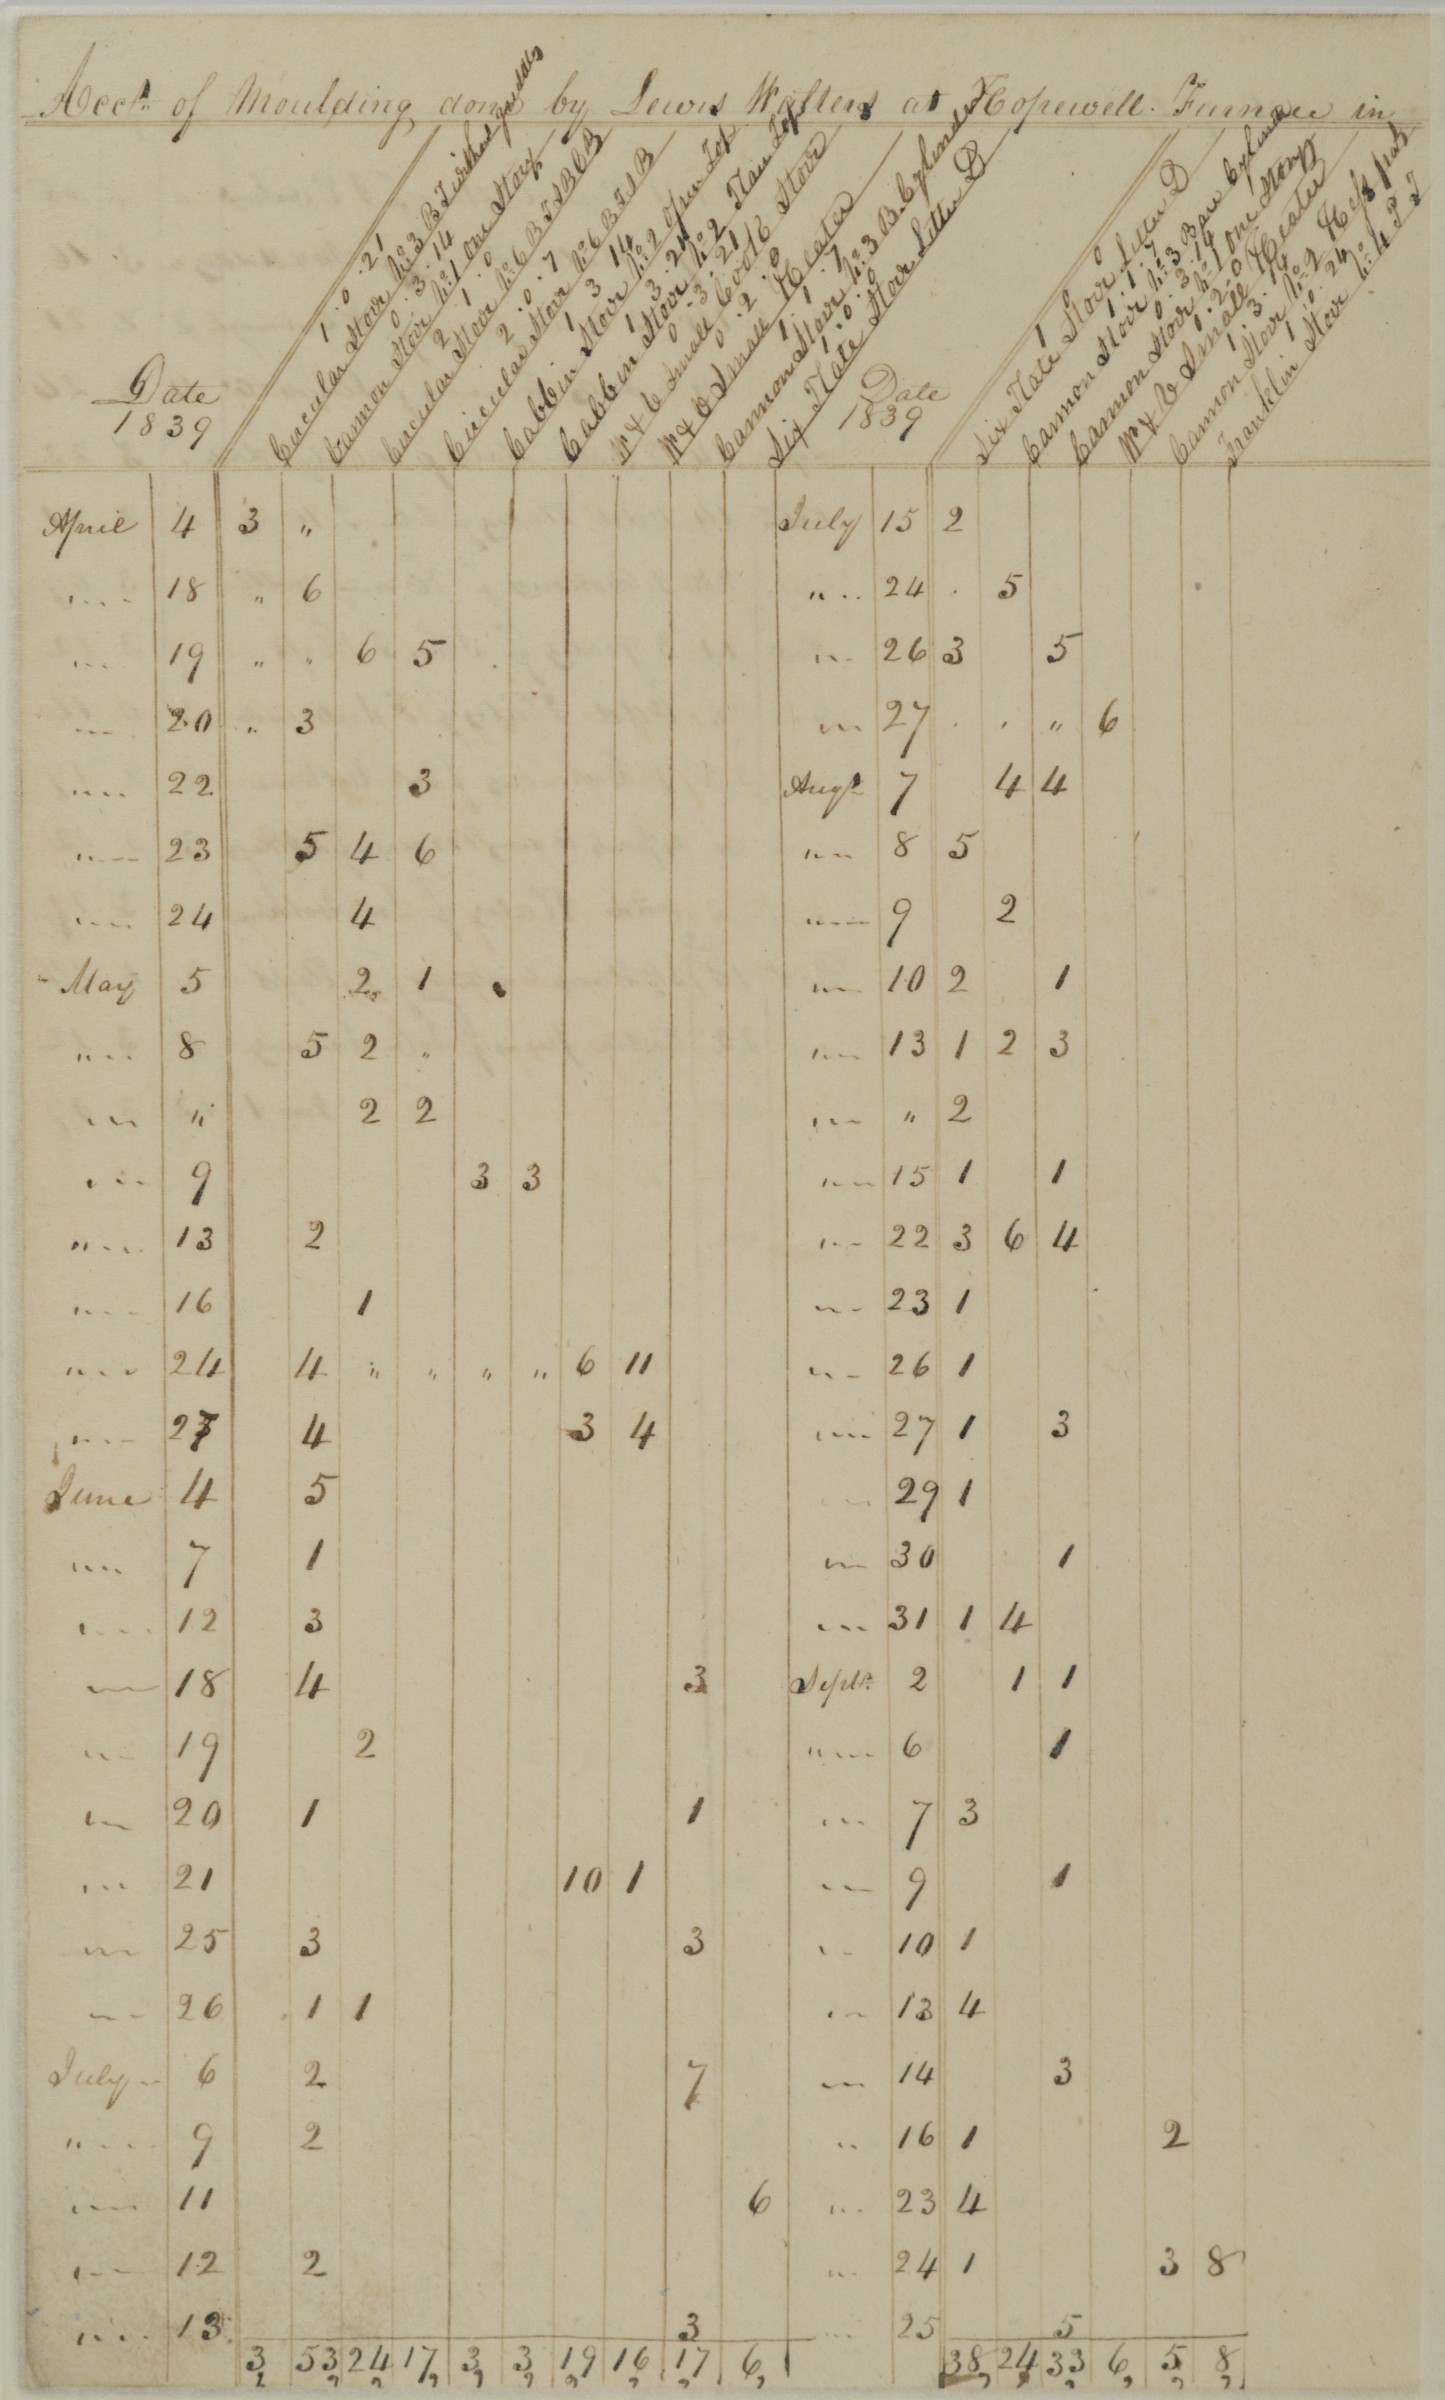 Acct. of Moulding done by Lewis Walters at Hopewell Furnace in
Date
1839
1 . 0 . 21
Circular Stove No 3 B T without
0 . 3 . 14
Cannon Stove No 1 One Story
2 . 1 . 0
Circular Stove No 6 B T S B C B
2 . 0 . 7
Circular Stove No 6 B T S B
1 3 14
Cabbin Stove No 2 Open Top
1 . 3 . 21
Cabbin Stove No 2 Plain Top
0 . 3 . 21
W & C Small Cook Stove
0 . 2 . 0
Small Heater
1 . 1 . 7
Cannon Stove No 3 B. Cylinder
1 . 0 . 0
Six Plate Stove Letter D
Date
1839
1 0 0
Six Plate Stove Letter D
1 . 1 . 7
Cannon Stove No 3 Bare Cylinder
0 . 3 . 14
Cannon Stove No 1 One Story
0 . 2 . 0
Small Heater
1 . 3 . 14
Cannon Stove No 2
1 . 0 . 24
Franklin Stove No 4
April 4 3 "
" 18 " 6
" 19 " " 6 5
" 20 " 3
" 22 3
" 23 5 4 6
" 24 4
May 5 2 1
" 8 5 2 "
" " 2 2
" 9 3 3
" 13 2
" 16 1
" 24 4 " " " " 6 11
" 27 4 3 4
June 4 5
" 7 1
" 12 3
" 18 4 3
" 19 2
" 20 1 1
" 21 10 1
" 25 3 3
" 26 1 1
July 6 2 7
" 9 2
" 11 6
" 12 2
" 13 3
3, 53, 24, 17, 3, 3, 19, 16, 17, 6,
July 15 2
" 24 . 5
" 26 3 5
" 27 . . " 6
Augt. 7 4 4
" 8 5
" 9 2
" 10 2 1
" 13 1 2 3
" " 2
" 15 1 1
" 22 3 6 4
" 23 1
" 26 1
" 27 1 3
" 29 1
" 30 1
" 31 1 4
Sept. 2 1 1
" 6 1
" 7 3
" 9 1
" 10 1
" 13 4
" 14 3
" 16 1 2
" 23 4
" 24 1 3 8
" 25 5
38, 24, 33, 6, 5, 8,